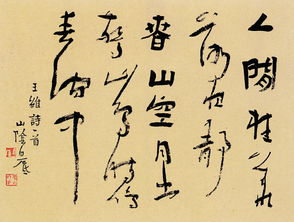 人閒桂花
落夜靜
春山空月出
驚山鳥時鳴
春澗中
王維詩一首
山陰白